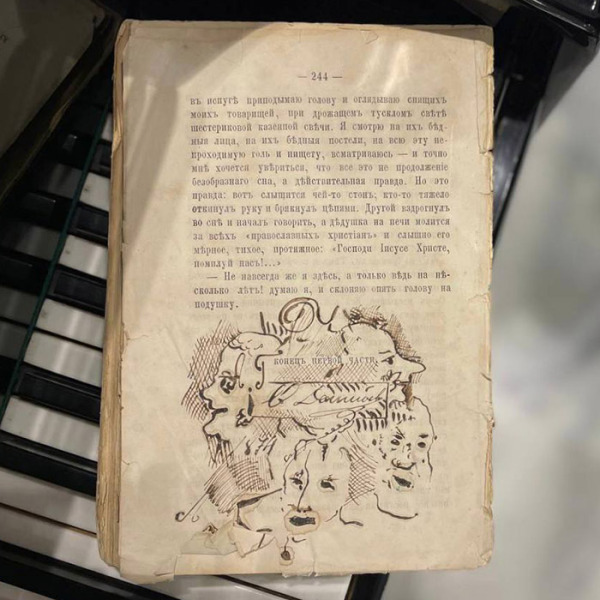 — 244 —
въ испугѣ приподымаю голову и оглядываю спящихъ
моихъ товарищей, при дрожащемъ тускломъ свѣтѣ
шестериковой казенной свѣчи. Я смотрю на ихъ бѣд-
ныя лица, на ихъ бѣдныя постели, на всю эту не-
проходимую голь и нищету, всматриваюсь — и точно
мнѣ хочется увѣриться, что все это не продолженіе
безобразнаго сна, а дѣйствительная правда. Но это
правда: вотъ слышится чей-то стонъ; кто-то тяжело
откинулъ руку и брякнулъ цѣпями. Другой вздрогнулъ
во снѣ и началъ говорить, а дѣдушка на печи молится
за всѣхъ «православныхъ христіанъ» и слышно его
мѣрное, тихое, протяжное: «Господи Іисусе Христе,
помилуй насъ!...»
— Не навсегда же я здѣсь, а только вѣдь на нѣ-
сколько лѣтъ! думаю я, и склоняю опять голову на
подушку.
КОНЕЦЪ ПЕРВОЙ ЧАСТИ